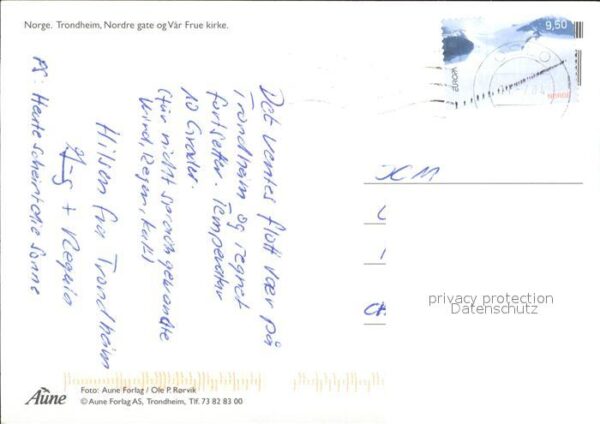 Norge. Trondheim, Nordre gate og Vår Frue kirke.
9,50
EUROPA
NORGE
Det ventes flott vær på
Trondheim og regnet
fortsetter. Temperatur
10 Grader.
(für nicht sprachgewandte
Wind, Regen, kalt)
Hilsen fra Trondheim
+ Regula
PS Heute scheint die Sonne
privacy protection
Datenschutz
Aune
Foto: Aune Forlag / Ole P. Rørvik
© Aune Forlag AS, Trondheim, Tlf. 73 82 83 00